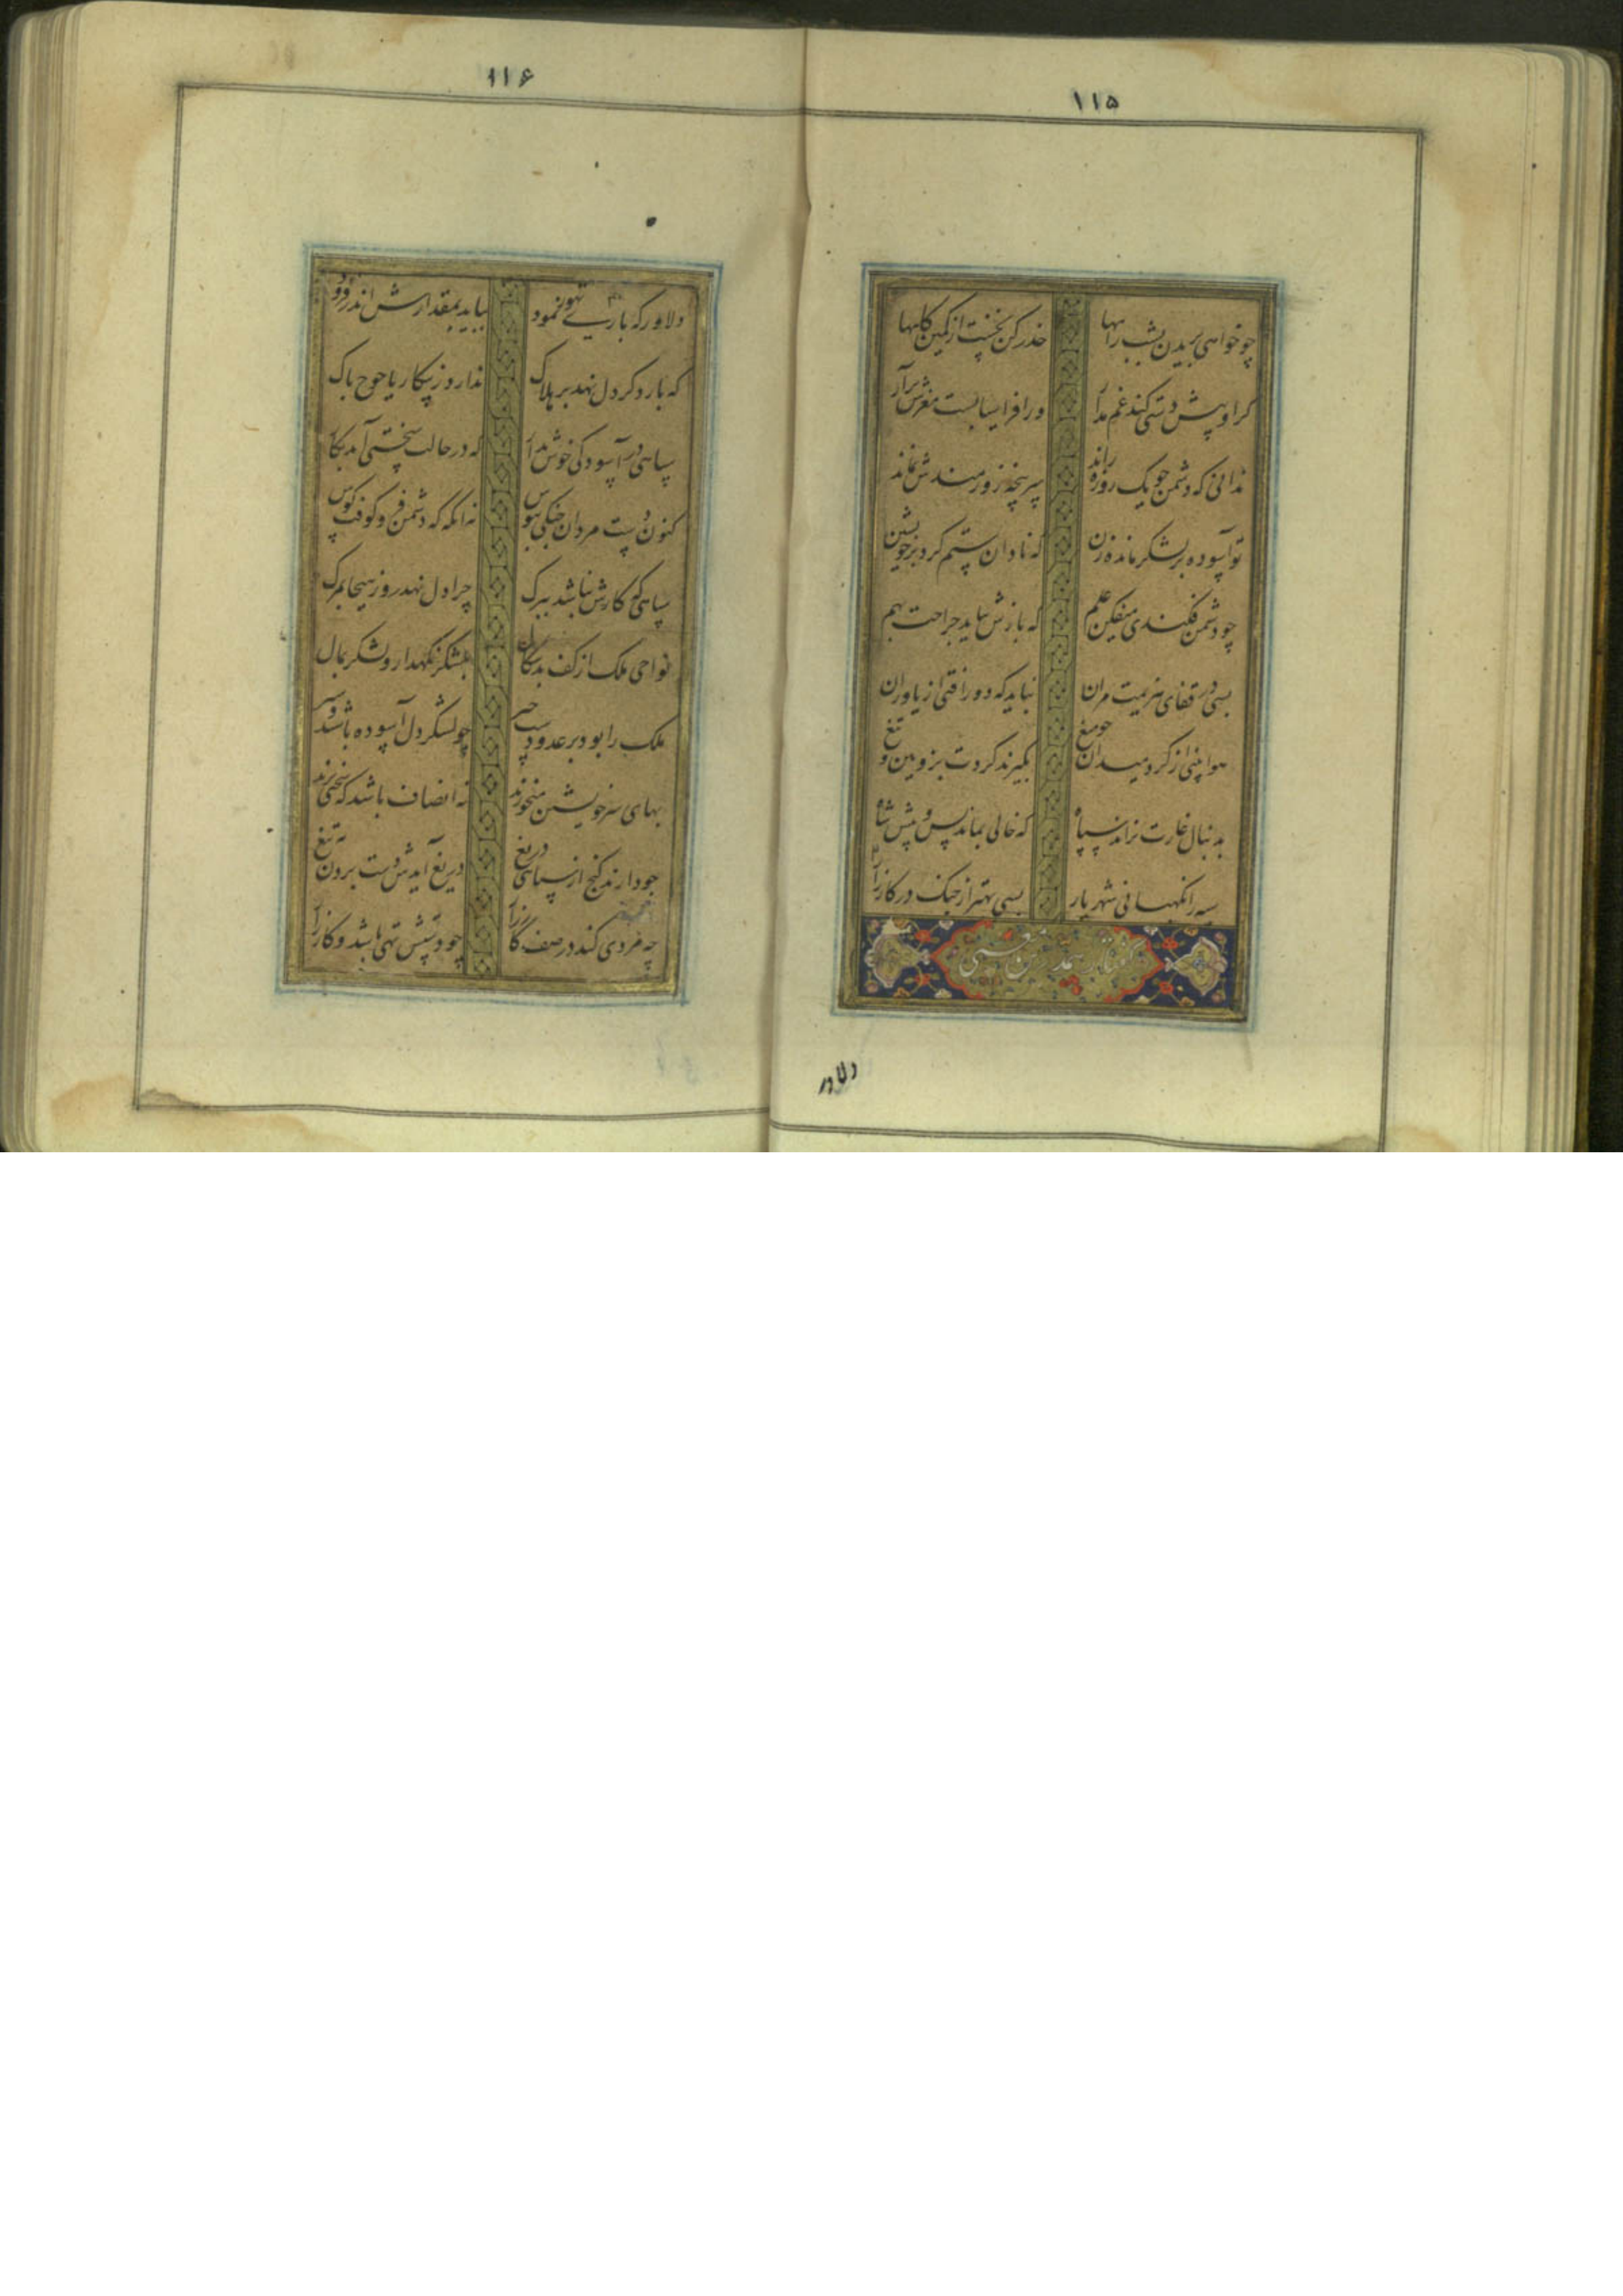 ۱۱۵
چو خواهی بریدن بشب راهها حذر کن نخست از کمین کاهها
کر او پیش دستی کند غم مدار ور افراسیابست مغزش برآر
ندانی که دشمن چو یک روزه راند سر پنجه زورمندش نماند
تو آسوده بر لشکر مانده زن که نادان ستم کرد بر خویشتن
چو دشمن فکندی میفکن علم که بازش نیاید جراحت بهم
بسی در قفای هزیمت مران نباید که دور افتی از یاوران
هوا بینی از کرد میدان چو میغ بکیرند کردت بزوبین و تیغ
به دنبال غارت نراند سپاه که خالی بماند پس و پیش شاه
سپه را نکهبانی شهریار بسی بهتر از جنک در کارزار
دلاور
۱۱۶
دلاور که باری تهور نمود بباید بمقدارش اندر فزود
که بار دکر دل نهد بر هلاک ندارد ز پیکار یاجوج باک
سپاهی در آسودکی خوش بدار که در حالت سختی آید بکار
کنون دست مردان جنکی ببوس نه آنکه که دشمن فرو کوفت کوس
سپاهی که کارش نباشد ببرک چرا دل نهد روز هیجا بمرک
نواحی ملک از کف بدسکال بلشکر نکهدار و لشکر بمال
ملک را بود بر عدو دست چیر چو لشکر دل آسوده باشند و سیر
بهای سر خویشتن میخورند نه انصاف باشد که سختی برند
چو دارند کنج از سپاهی دریغ دریغ آیدش دست بردن به تیغ
چه مردی کند در صف کارزار چو دستش تهی باشد و کار زار